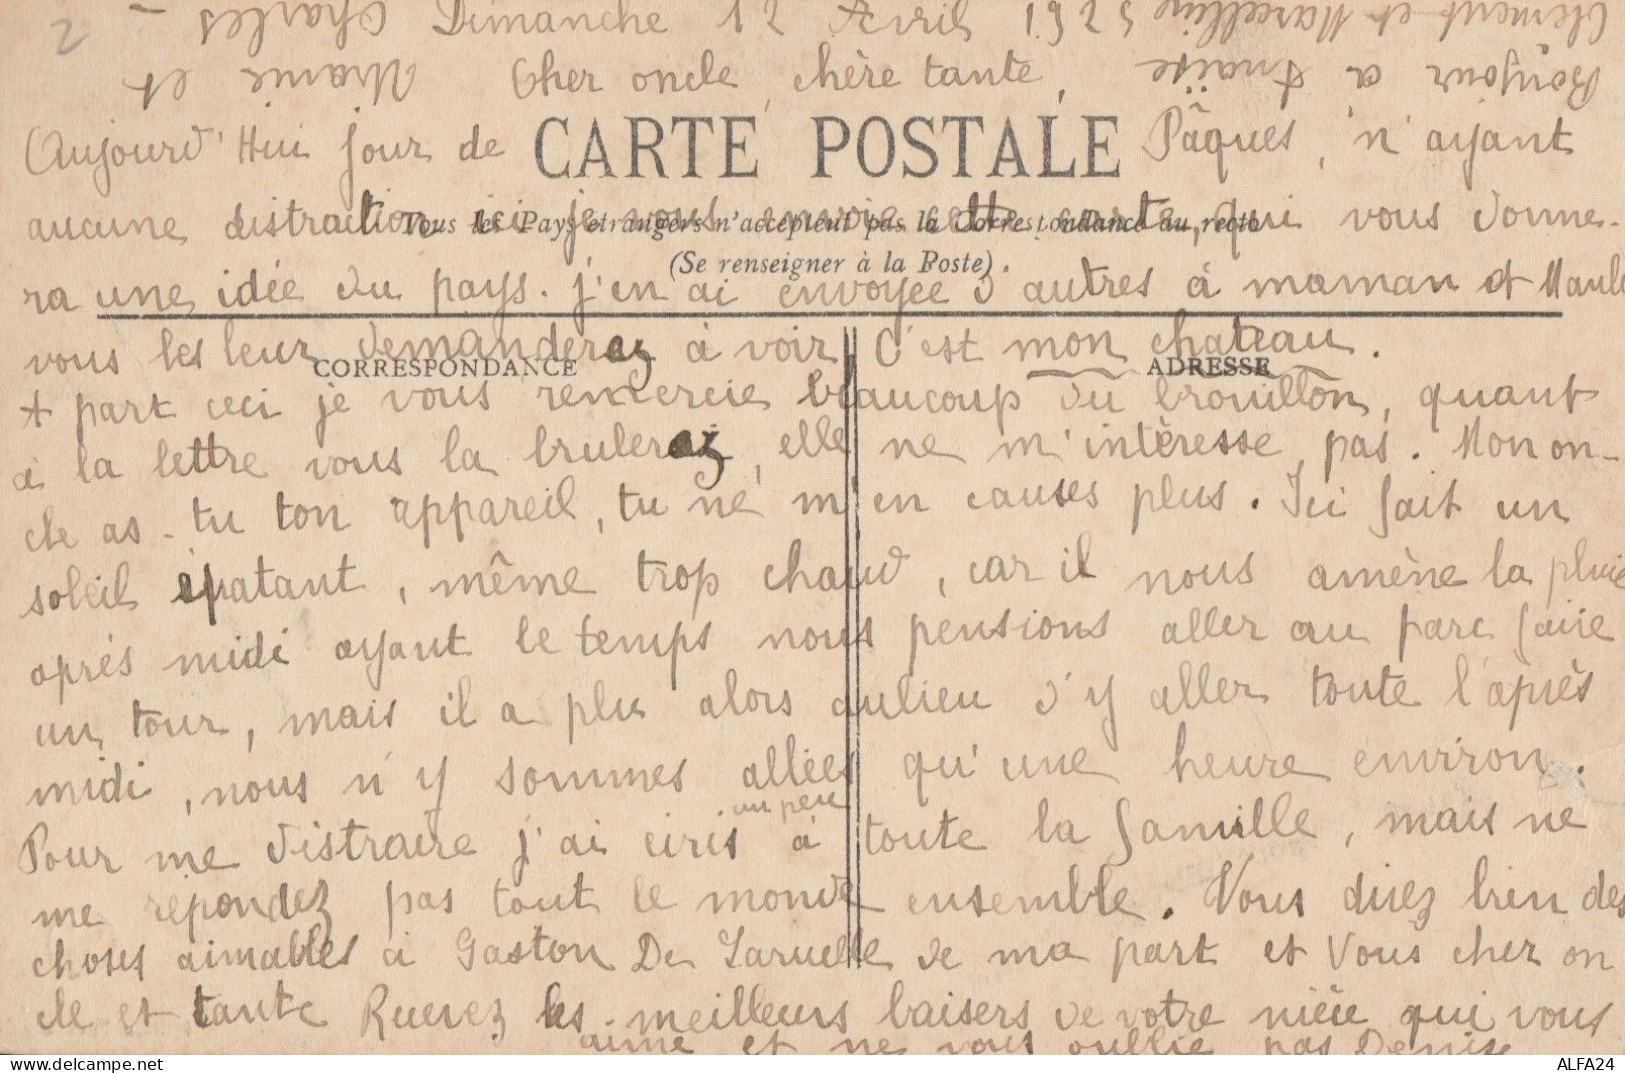 2
Dimanche 12 Avril 1925
Cher oncle, chère tante,
Aujourd'Hui jour de Pâques, n'ayant
CARTE POSTALE
aucune distraction ici je vous envoie cette carte, qui vous donne-
Tous les Pays etrangers n'acceptent pas la Correspondance au recto
(Se renseigner à la Poste).
ra une idée du pays. j'en ai envoyée d'autres à maman et
vous les leur demanderez à voir, C'est mon chateau.
CORRESPONDANCE
ADRESSE
A part ceci je vous remercie beaucoup du brouillon, quant
à la lettre vous la brulerez, elle ne m'intèresse pas. Mon on-
cle as-tu ton appareil, tu ne m'en causes plus. Ici fait un
soleil épatant, même trop chaud, car il nous amène la pluie
après midi ayant le temps nous pensions aller au parc faire
un tour, mais il a plu alors aulieu d'y aller toute l'après
midi, nous n'y sommes allées qu'une heure environ.
un peu
Pour me distraire j'ai ecris à toute la famille, mais ne
me répondez pas tout le monde ensemble. Vous direz bien des
choses aimables à Gaston De Laruelle de ma part et Vous cher on
cle et tante Recevez les meilleurs baisers de votre nièce qui vous
aime et ne vous oublie pas Denise
Bonjour à Anaïse et
Clément et Marcelline
Charles
ALFA24